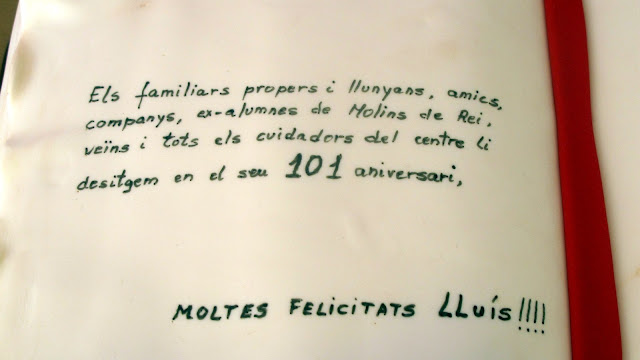 Els familiars propers i llunyans, amics,
companys, ex-alumnes de Molins de Rei,
veïns i tots els cuidadors del centre li
desitgem en el seu 101 aniversari,
MOLTES FELICITATS LLuís!!!!